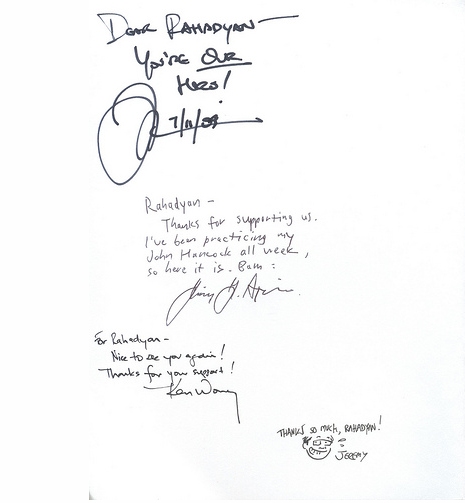 Dear Rahadyan—
You're Our
Hero!
7/11/09
Rahadyan –
Thanks for supporting us.
I've been practicing my
John Hancock all week,
so here it is. Bam:
For Rahadyan—
Nice to see you again!
Thanks for your support!
Ken Wong
THANKS SO MUCH, RAHADYAN!
JEREMY